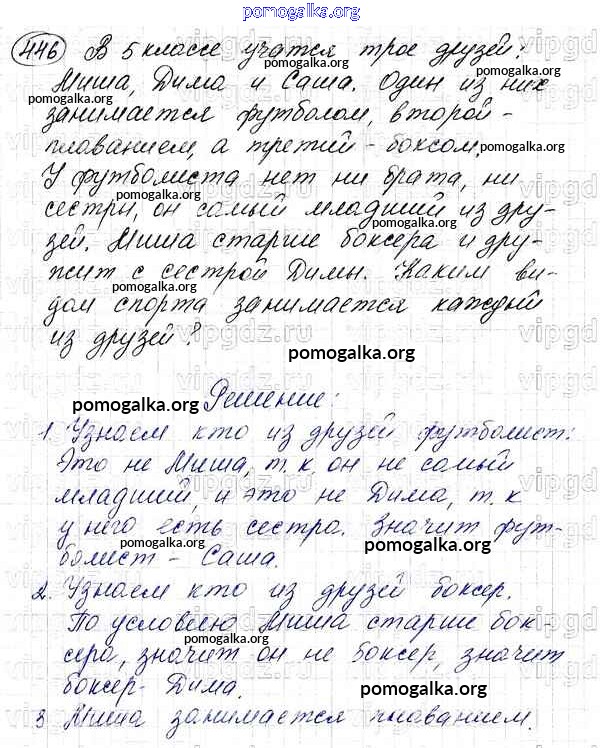 pomogalka.org
446 В 5 классе учатся трое друзей:
Миша, Дима и Саша. Один из них
pomogalka.org pomogalka.org
занимается футболом, второй -
плаванием, а третий - боксом.
pomogalka.org
У футболиста нет ни брата, ни
pomogalka.org
сестры, он самый младший из дру-
зей. Миша старше боксера и дру-
жит с сестрой Димы. Каким ви-
pomogalka.org
дом спорта занимается каждый
из друзей?
pomogalka.org
Решение:
pomogalka.org
1. Узнаем кто из друзей футболист:
Это не Миша, т. к. он не самый
pomogalka.org
младший, и это не Дима, т. к
у него есть сестра. Значит фут-
pomogalka.org
болист - Саша.
2. Узнаем кто из друзей боксер.
По условию Миша старше бок-
pomogalka.org
сера, значит он не боксер, значит
боксер - Дима.
pomogalka.org
3 Миша занимается плаванием.